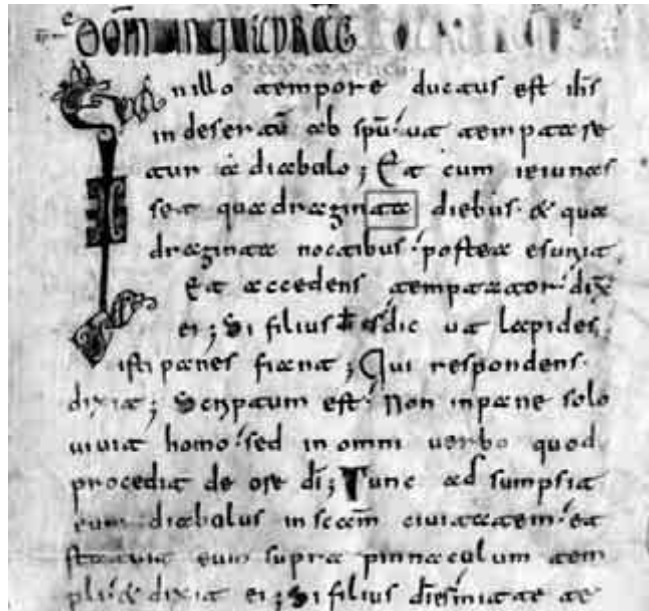 DOM IN QUADRAG
In illo tempore ductus est ihs
in desertū ab spū ut temptare
tur a diabolo; Et cum ieiunas
set quadraginta diebus & qua
draginta noctibus postea esuriit
Et accedens temptator dix̄
ei; Si filius dī es dic ut lapides
isti panes fiant; Qui respondens
dixit; Scriptum est Non in pane solo
vivit homo sed in omni uerbo quod
procedit de ore dī; Tunc adsumpsit
eum diabolus in scām ciuitatem et
statuit eum supra pinnaculum tem
pli & dixit ei; Si filius dī es mitte te